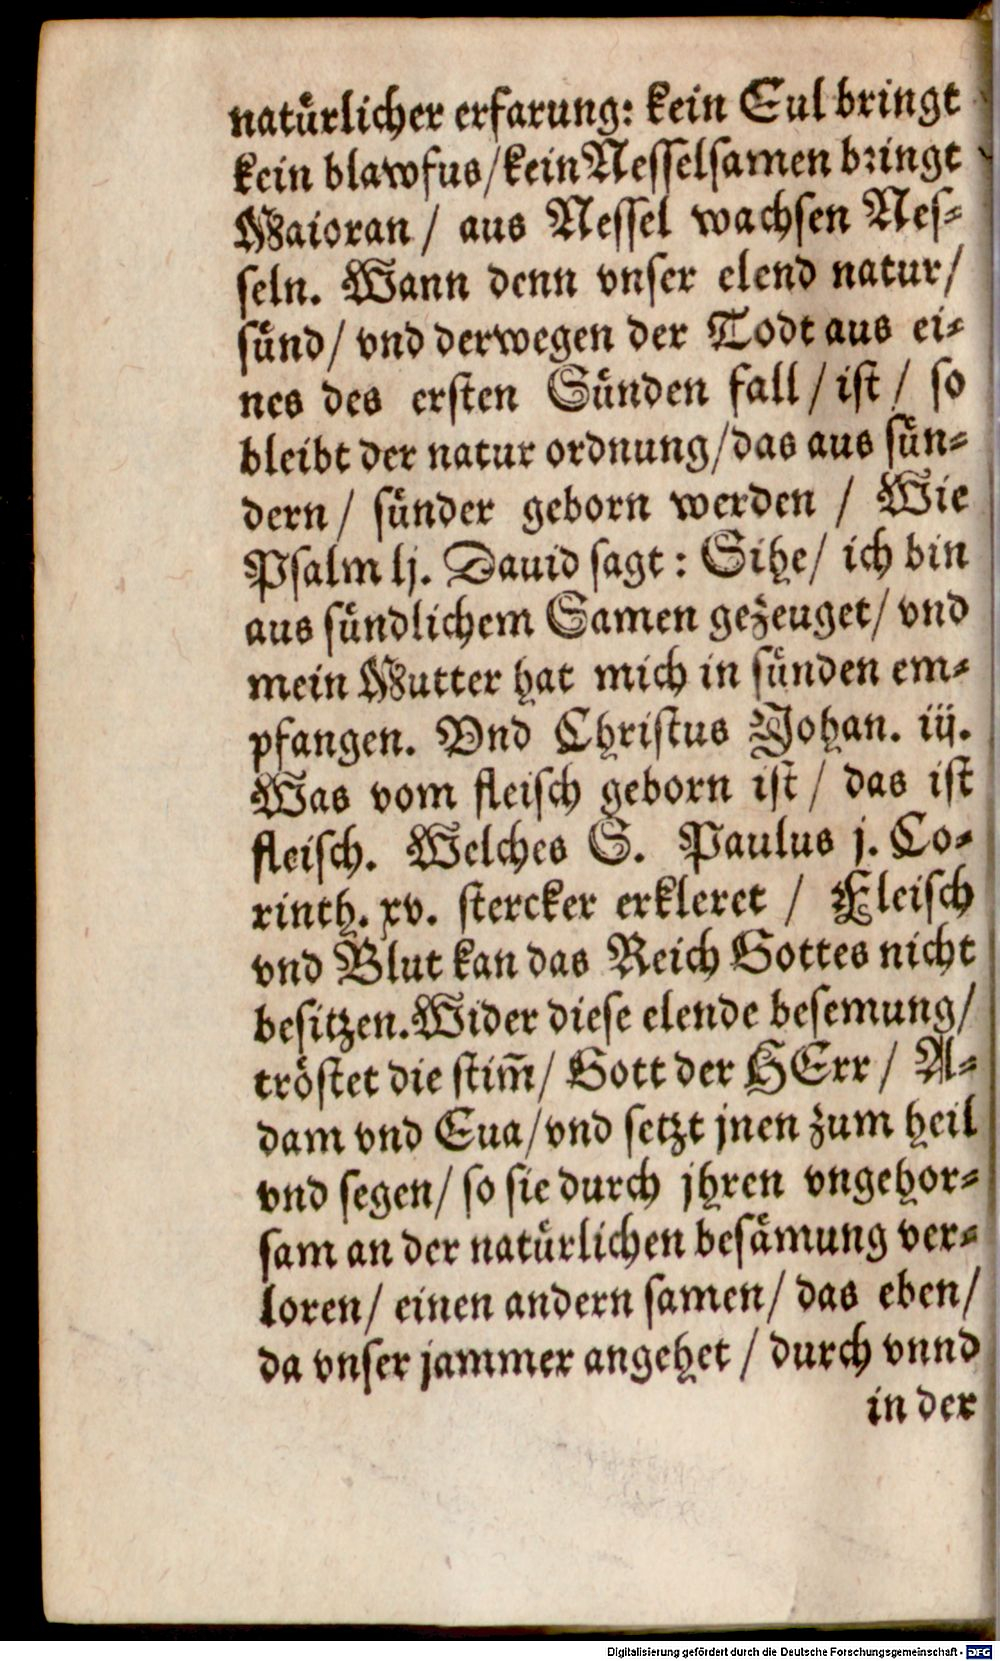 natuͤrlicher erfarung: kein Eul bringt
kein blawfus/kein Nesselsamen bringt
Maioran / aus Nessel wachsen Nes⸗
seln. Wann denn vnser elend natur/
suͤnd/ vnd derwegen der Todt aus ei⸗
nes des ersten Suͤnden fall / ist / so
bleibt der natur ordnung/das aus suͤn⸗
dern / suͤnder geborn werden / Wie
Psalm lj. Dauid sagt: Sihe/ ich bin
aus suͤndlichem Samen gezeuget/ vnd
mein Mutter hat mich in suͤnden em⸗
pfangen. Vnd Christus Johan. iij.
Was vom fleisch geborn ist / das ist
fleisch. Welches S. Paulus j. Co⸗
rinth. xv. stercker erkleret / Fleisch
vnd Blut kan das Reich Gottes nicht
besitzen. Wider diese elende besemung/
troͤstet die stim̃/ Gott der HErr / A⸗
dam vnd Eua/vnd setzt jnen zum heil
vnd segen/ so sie durch jhren vngehor⸗
sam an der natuͤrlichen besaͤmung ver⸗
loren/ einen andern samen/ das eben/
da vnser jammer angehet / durch vnnd
in der
Digitalisierung gefördert durch die Deutsche Forschungsgemeinschaft - DFG